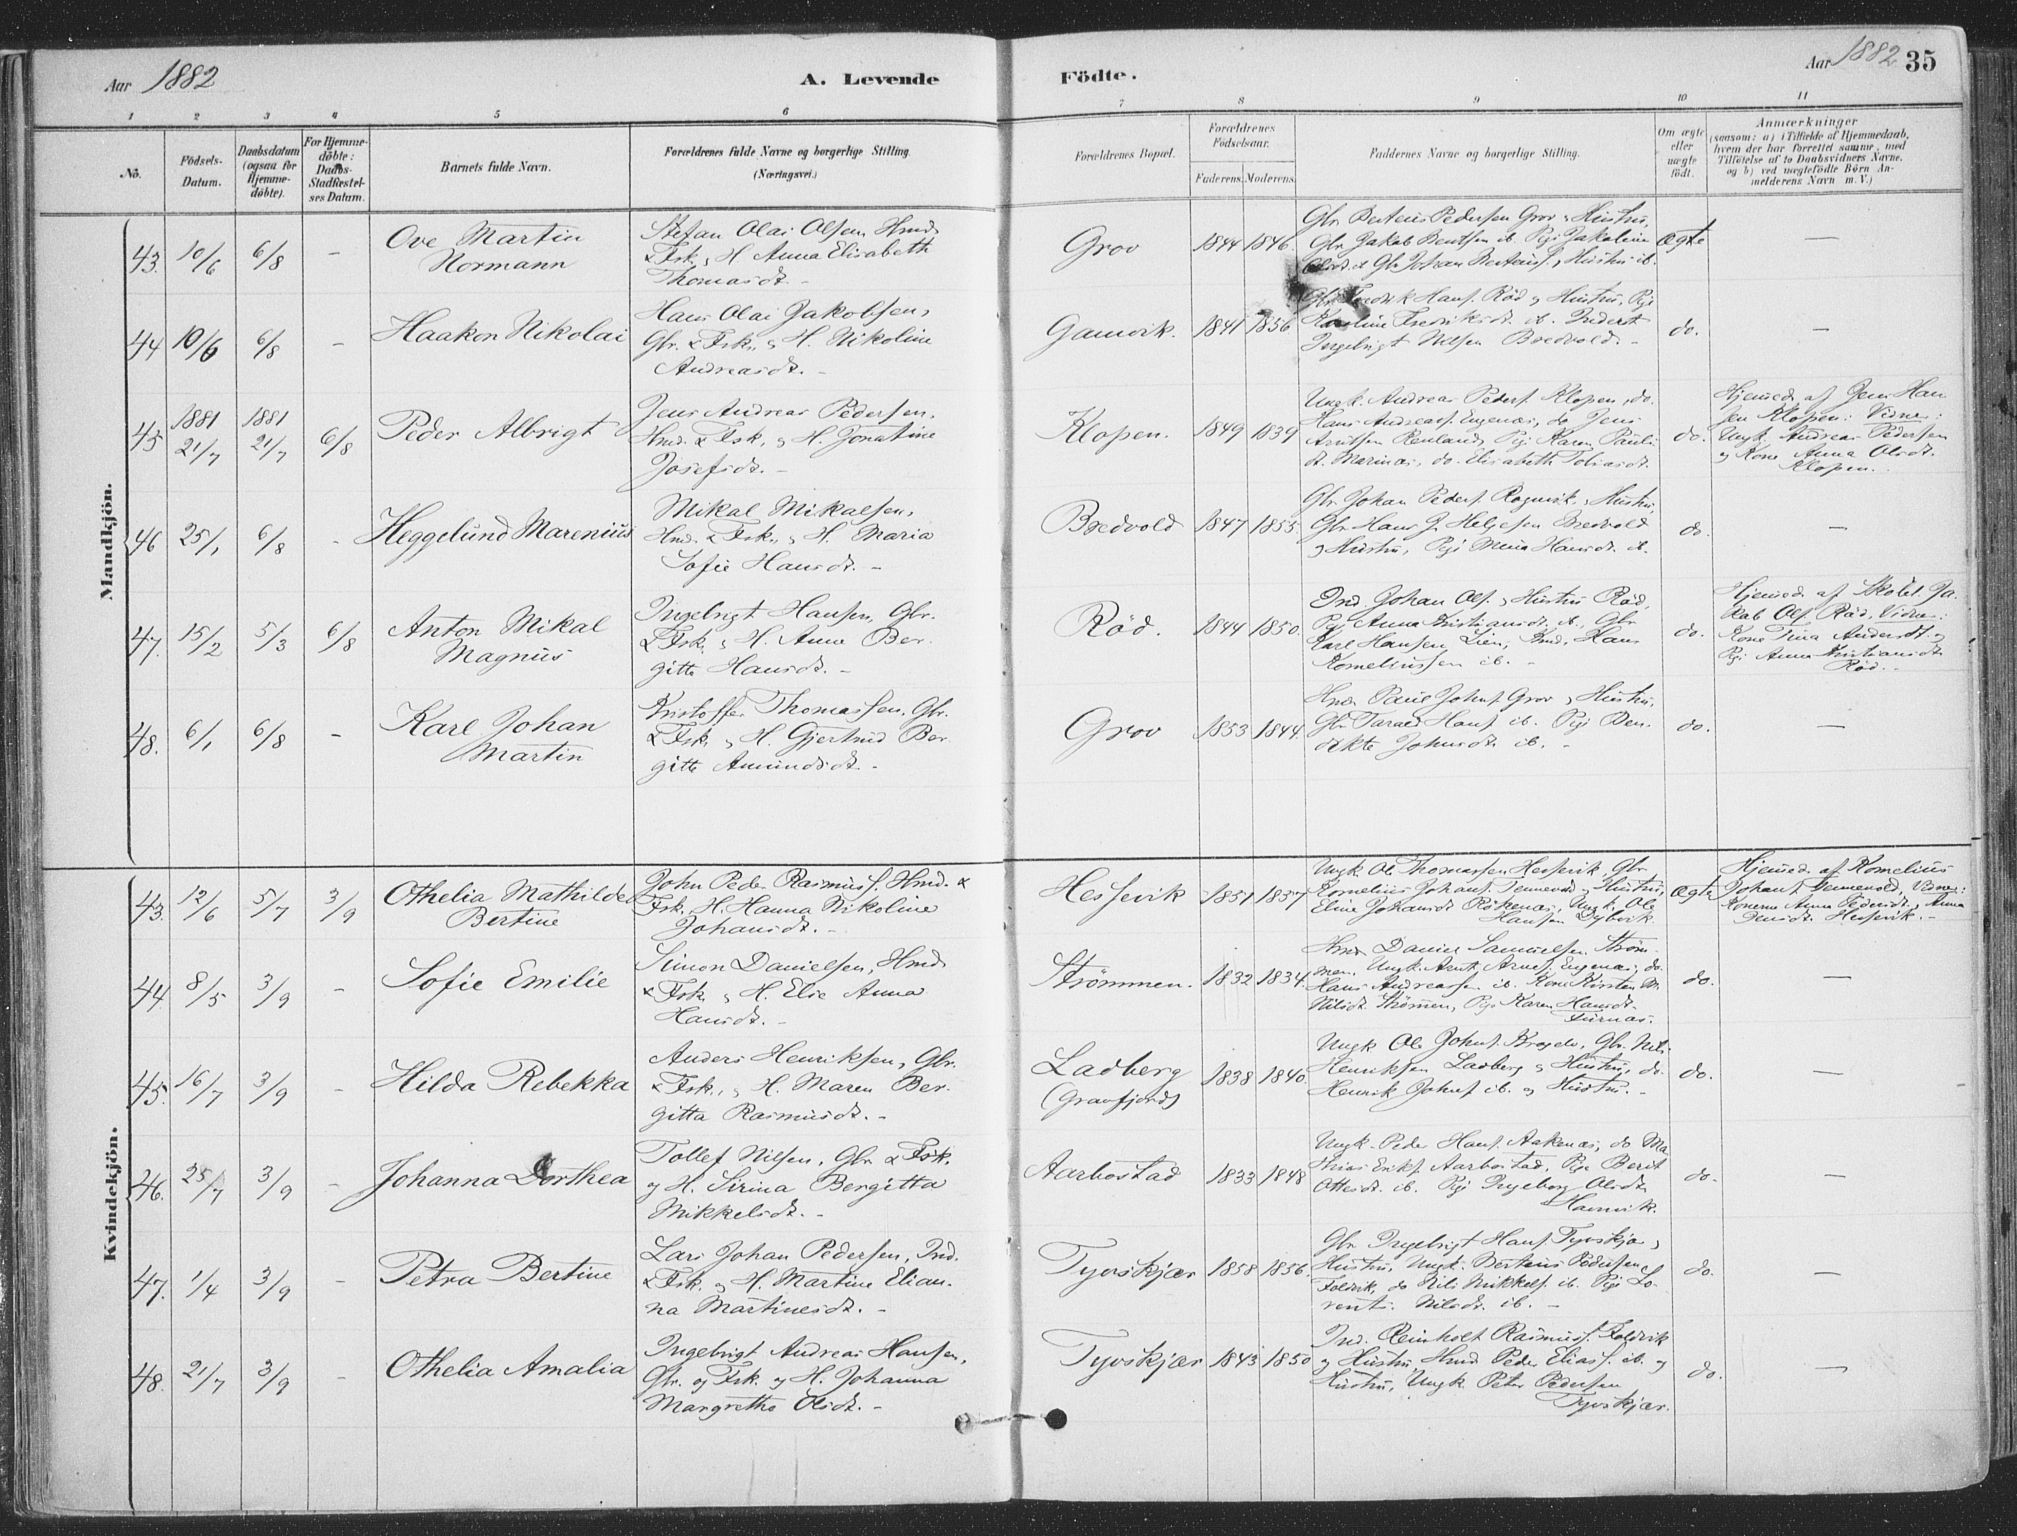 Aar 1882
A. Levende
Födte.
Aar 1882
35
1 2 3 4 5 6 7 8 9 10 11
No.
Födsels-
Datum.
Daabsdatum
(ogsaa for
Hjemme-
döbte).
For Hjemme-
döbte:
Daabs-
Stadfæstel-
ses Datum.
Barnets fulde Navn.
Forældrenes fulde Navne og borgerlige Stilling.
(Næringsvei.)
Forældrenes Bopæl.
Forældrenes
Födselsaar.
Faderens. Moderens.
Faddernes Navne og borgerlige Stilling.
Om ægte
eller
uægte
födt.
Anmærkninger
(saasom: a) i Tilfælde af Hjemmedaab,
hvem der har forrettet samme, med
Tilföielse af to Daabsvidners Navne,
og b) ved uægtefödte Börn An-
melderens Navn m. V.)
Mandkjön.
43. 10/6 6/8 -
Ove Martin
Normann
Stefan Olai Olsen, Hmd.
& Fsk., H. Anna Elisabeth
Thomasdt. -
Grov
1844 1846.
Gbr. Berteus Pedersen Grov & Hustru,
Gbr. Jakob Bentsen ib. Pige Jakoline
Gbr Johan Bertens. & Hustru ib.
Ægte
—
44 10/6 6/8 -
Haakon Nikolai
Hans Olai Jakobsen,
Gbr. & Fsk., og H. Nikoline
Andreasdt. -
Gamvik.
1841 1856
Gbr. Fredrik Hans. Röd og Hustru, Pige
Karoline Fredriksdt. ib. Inderst
Ingebrigt Nilsen Bredvold. -
do.
—
45 1881 21/7 1881 21/7 6/8
Peder Albrigt
Jens Andreas Pedersen,
Hmd. & Fsk., og H. Jonatine
Josefsdt. -
Klopen.
1849 1839
Ungk. Andreas Peders. Klopen, do.
Hans Andreass. Engenæs, do Jens
Arntsen Renland, Pige Karen Pauls-
dt. Marinæs, do. Elisabeth Tobiasdt.
do.
Hjemmed. af Jens Han-
sen Klopen: Vidne:
Ungk. Andreas Pedersen
og Kone Anna Olsdt.
Klopen.
46 25/1 6/8 -
Heggelund Marenius
Mikal Mikalsen,
Hmd. & Fsk., og H. Maria
Sofie Hansdt. -
Bredvold
1847 1855.
Gbr Johan Peders. Rognvik, Hustru,
Gbr Hans J. Heljesen Bredvold
og Hustru, Pige Mina Hansdt. ib.
do.
—
47. 15/2 5/3 6/8
Anton Mikal
Magnus
Ingebrigt Hansen, Gbr.
& Fsk., og H. Anne Ber-
gitte Hansdt. -
Röd.
1844 1850.
Ind. Johan Ols. og Hustru Röd,
Pige Anna Kristiansdt ib., Gbr
Karl Hansen Lien, Hmd. Hans
Korneliussen ib. -
do.
Hjemmed af Skolel. Ja-
kob Ols. Röd, Vidne:
Kone Trina Andersdt. og
Pige Anna Kristiansdt.
Röd. -
48. 6/1 6/8 -
Karl Johan
Martin
Kristoffer Thomassen, Gbr.
& Fsk. og H. Gjertrud Ber-
gitte Amundsdt. -
Grov
1853 1844.
Hmd. Paul Johns. Grov & Hustru,
Gbr Tarald Hans. ib. Pige Ben-
dikte Johnsdt. ib. -
do.
—
Kvindekjön.
43. 12/6 5/7 3/9
Othelia Mathilde
Bertine
John Peder Rasmuss. Hmd. &
Fsk. H. Hanna Nikoline
Johansdt. -
Hessevik
1851 1857
Ungk Ol Thomassen Hessevik, Gbr.
Kornelius Johans. Tennevold og Hustru,
Eline Johansdt Rökenæs, Ungk. Ole
Hansen Dybvik
Ægte
Hjemmed. af Kornelius
Johans. Tennevold, Vidne:
Konerne Anna Pedersdt., Anna
Jensdt. Hessevik. -
44. 8/5 3/9 -
Sofie Emilie
Simon Danielsen, Hmd.
& Fsk. og H. Else Anna
Hansdt. -
Strömmen.
1832 1834.
Hmd Daniel Samuelsen Ström-
men, Ungk. Arnt Arnes. Engenæs, do.
Hans Andreassen ib. Kone Kirsten M.
Nilsdt. Strömen, Pige Karen Hansdt.
Furnæs.
do.
—
45. 16/7 3/9 -
Hilda Rebekka
Anders Henriksen, Gbr.
& Fsk., og H. Maren Ber-
gitta Rasmusdt. -
Ladberg
(Gravfjord)
1838 1840.
Ungk Ole Johns. Gbr. Nils
Henriksen Ladberg & Hustru, do.
Henrik Johns. ib. og Hustru. -
do.
—
46. 25/7 3/9 -
Johanna Dorthea
Tollef Nilsen, Gbr & Fsk.
og H. Sirina Bergitta
Mikkelsdt. -
Aarbostad
1833 1848
Ungk. Peder Hans. Aakenæs, do Ma-
thias Eriks. Aarbostad, Pige Berit
Ottesdt. ib. Pige Ingeborg Olsdt
Havnvik.
do.
—
47. 1/4 3/9 -
Petra Bertine
Lars Johan Pedersen, Ind.
& Fsk. og H. Martine Elian-
na Martinesdt. -
Tyvskjær
1858 1856.
Gbr Ingebrigt Hans. Tyvskjær,
Hustru, Ungk. Bertens Pedersen
Foldvik, do Nils Mikkels. ib. Pige Lo-
rents. Nilsdt. ib. -
do.
—
48. 21/7 3/9 -
Othelia Amalia
Ingebrigt Andreas Hansen,
Gbr. og Fsk. og H. Johanna
Margrethe Olsdt. -
Tyvskjær
1843 1850
Ind. Reinholt Rasmuss. Foldvik
og Hustru, Hmd Peder Eliass. ib. og
Hustru, Ungk. Peter Pedersen
Tyvskjær.
do.
—